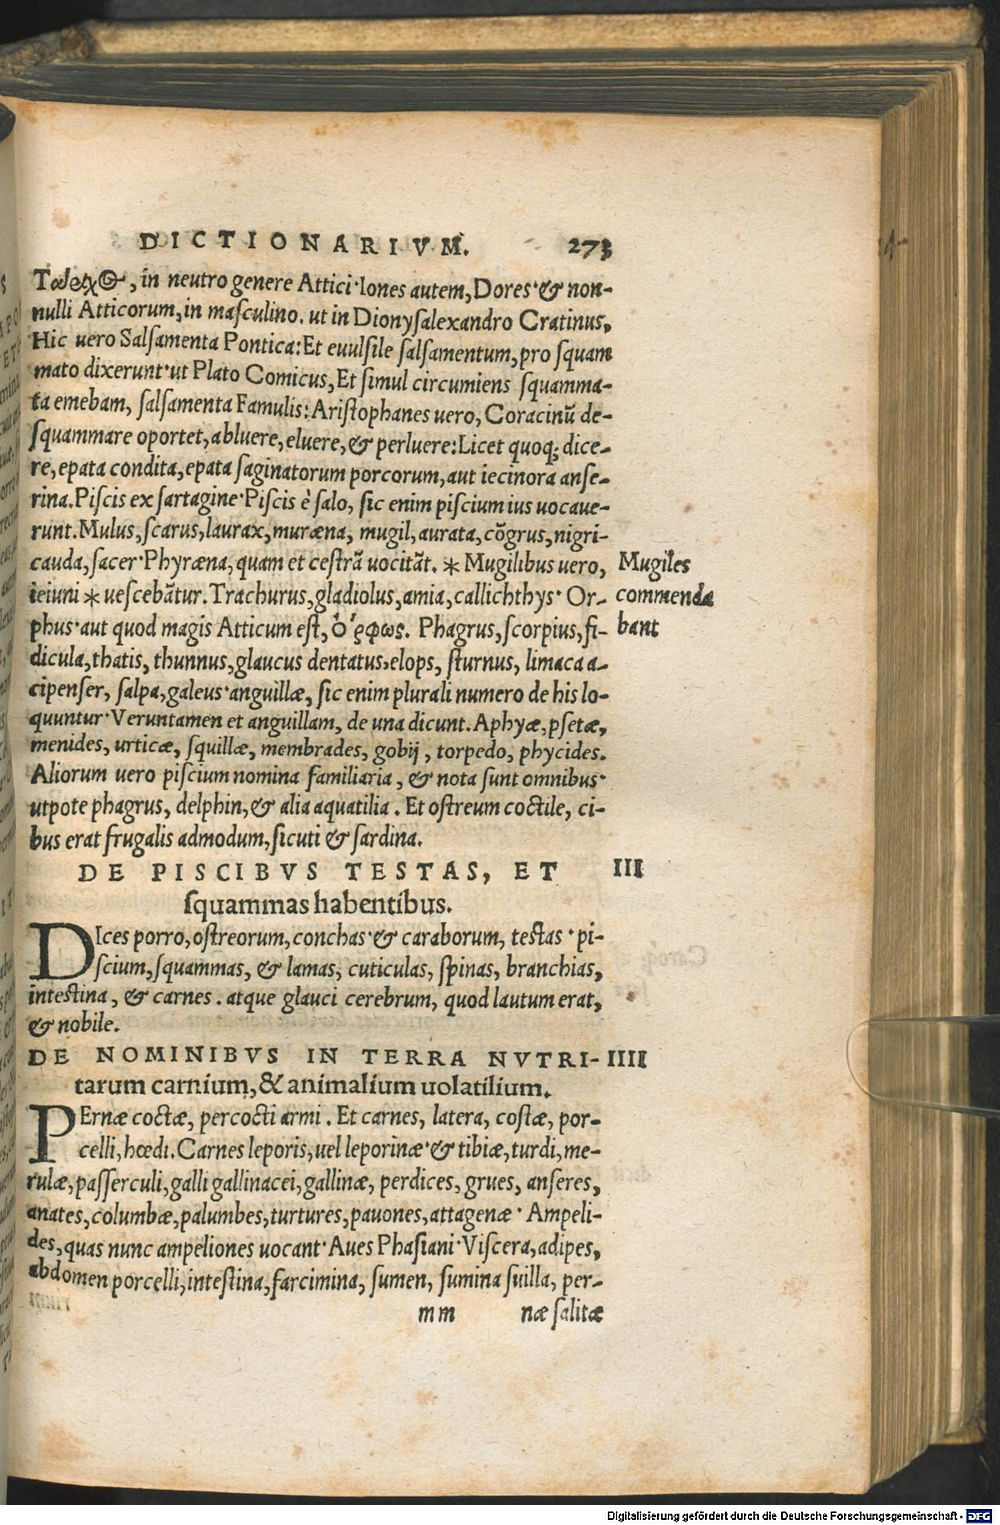 DICTIONARIVM. 273
Τάριχος, in neutro genere Attici·Iones autem, Dores·& non-
nulli Atticorum, in masculino. ut in Dionysalexandro Cratinus,
Hic uero Salsamenta Pontica: Et euulsile salsamentum, pro squam
mato dixerunt·ut Plato Comicus, Et simul circumiens squamma-
ta emebam, salsamenta Famulis: Aristophanes uero, Coracinũ de-
squammare oportet, abluere, eluere, & perluere: Licet quoq; dice-
re, epata condita, epata saginatorum porcorum, aut iecinora anse-
rina. Piscis ex sartagine·Piscis è salo, sic enim piscium ius uocaue-
runt. Mulus, scarus, laurax, muræna, mugil, aurata, cõgrus, nigri-
cauda, sacer·Phyræna, quam et cestrã uocitãt. * Mugilibus uero,
ieiuni * uescebãtur. Trachurus, gladiolus, amia, callichthys· Or-
phus·aut quod magis Atticum est, ὀρφως. Phagrus, scorpius, fi-
dicula, thatis, thunnus, glaucus dentatus, elops, sturnus, limaca a-
cipenser, salpa, galeus·anguillæ, sic enim plurali numero de his lo-
quuntur·Veruntamen et anguillam, de una dicunt. Aphyæ, psetæ,
menides, urticæ, squillæ, membrades, gobij, torpedo, phycides.
Aliorum uero piscium nomina familiaria, & nota sunt omnibus·
utpote phagrus, delphin, & alia aquatilia. Et ostreum coctile, ci-
bus erat frugalis admodum, sicuti & sardina.
Mugiles
commenda
bant
DE PISCIBVS TESTAS, ET III
squammas habentibus.
DIces porro, ostreorum, conchas·& caraborum, testas·pi-
scium, squammas, & lamas, cuticulas, spinas, branchias,
intestina, & carnes. atque glauci cerebrum, quod lautum erat,
& nobile.
DE NOMINIBVS IN TERRA NVTRI- IIII
tarum carnium, & animalium uolatilium.
PErnæ coctæ, percocti armi. Et carnes, latera, costæ, por-
celli, hœdi. Carnes leporis, uel leporinæ·& tibiæ, turdi, me-
rulæ, passerculi, galli gallinacei, gallinæ, perdices, grues, anseres,
anates, columbæ, palumbes, turtures, pauones, attagenæ· Ampeli-
des, quas nunc ampeliones uocant·Aues Phasiani·Viscera, adipes,
abdomen porcelli, intestina, farcimina, sumen, sumina suilla, per-
mm næ salitæ
Digitalisierung gefördert durch die Deutsche Forschungsgemeinschaft - DFG